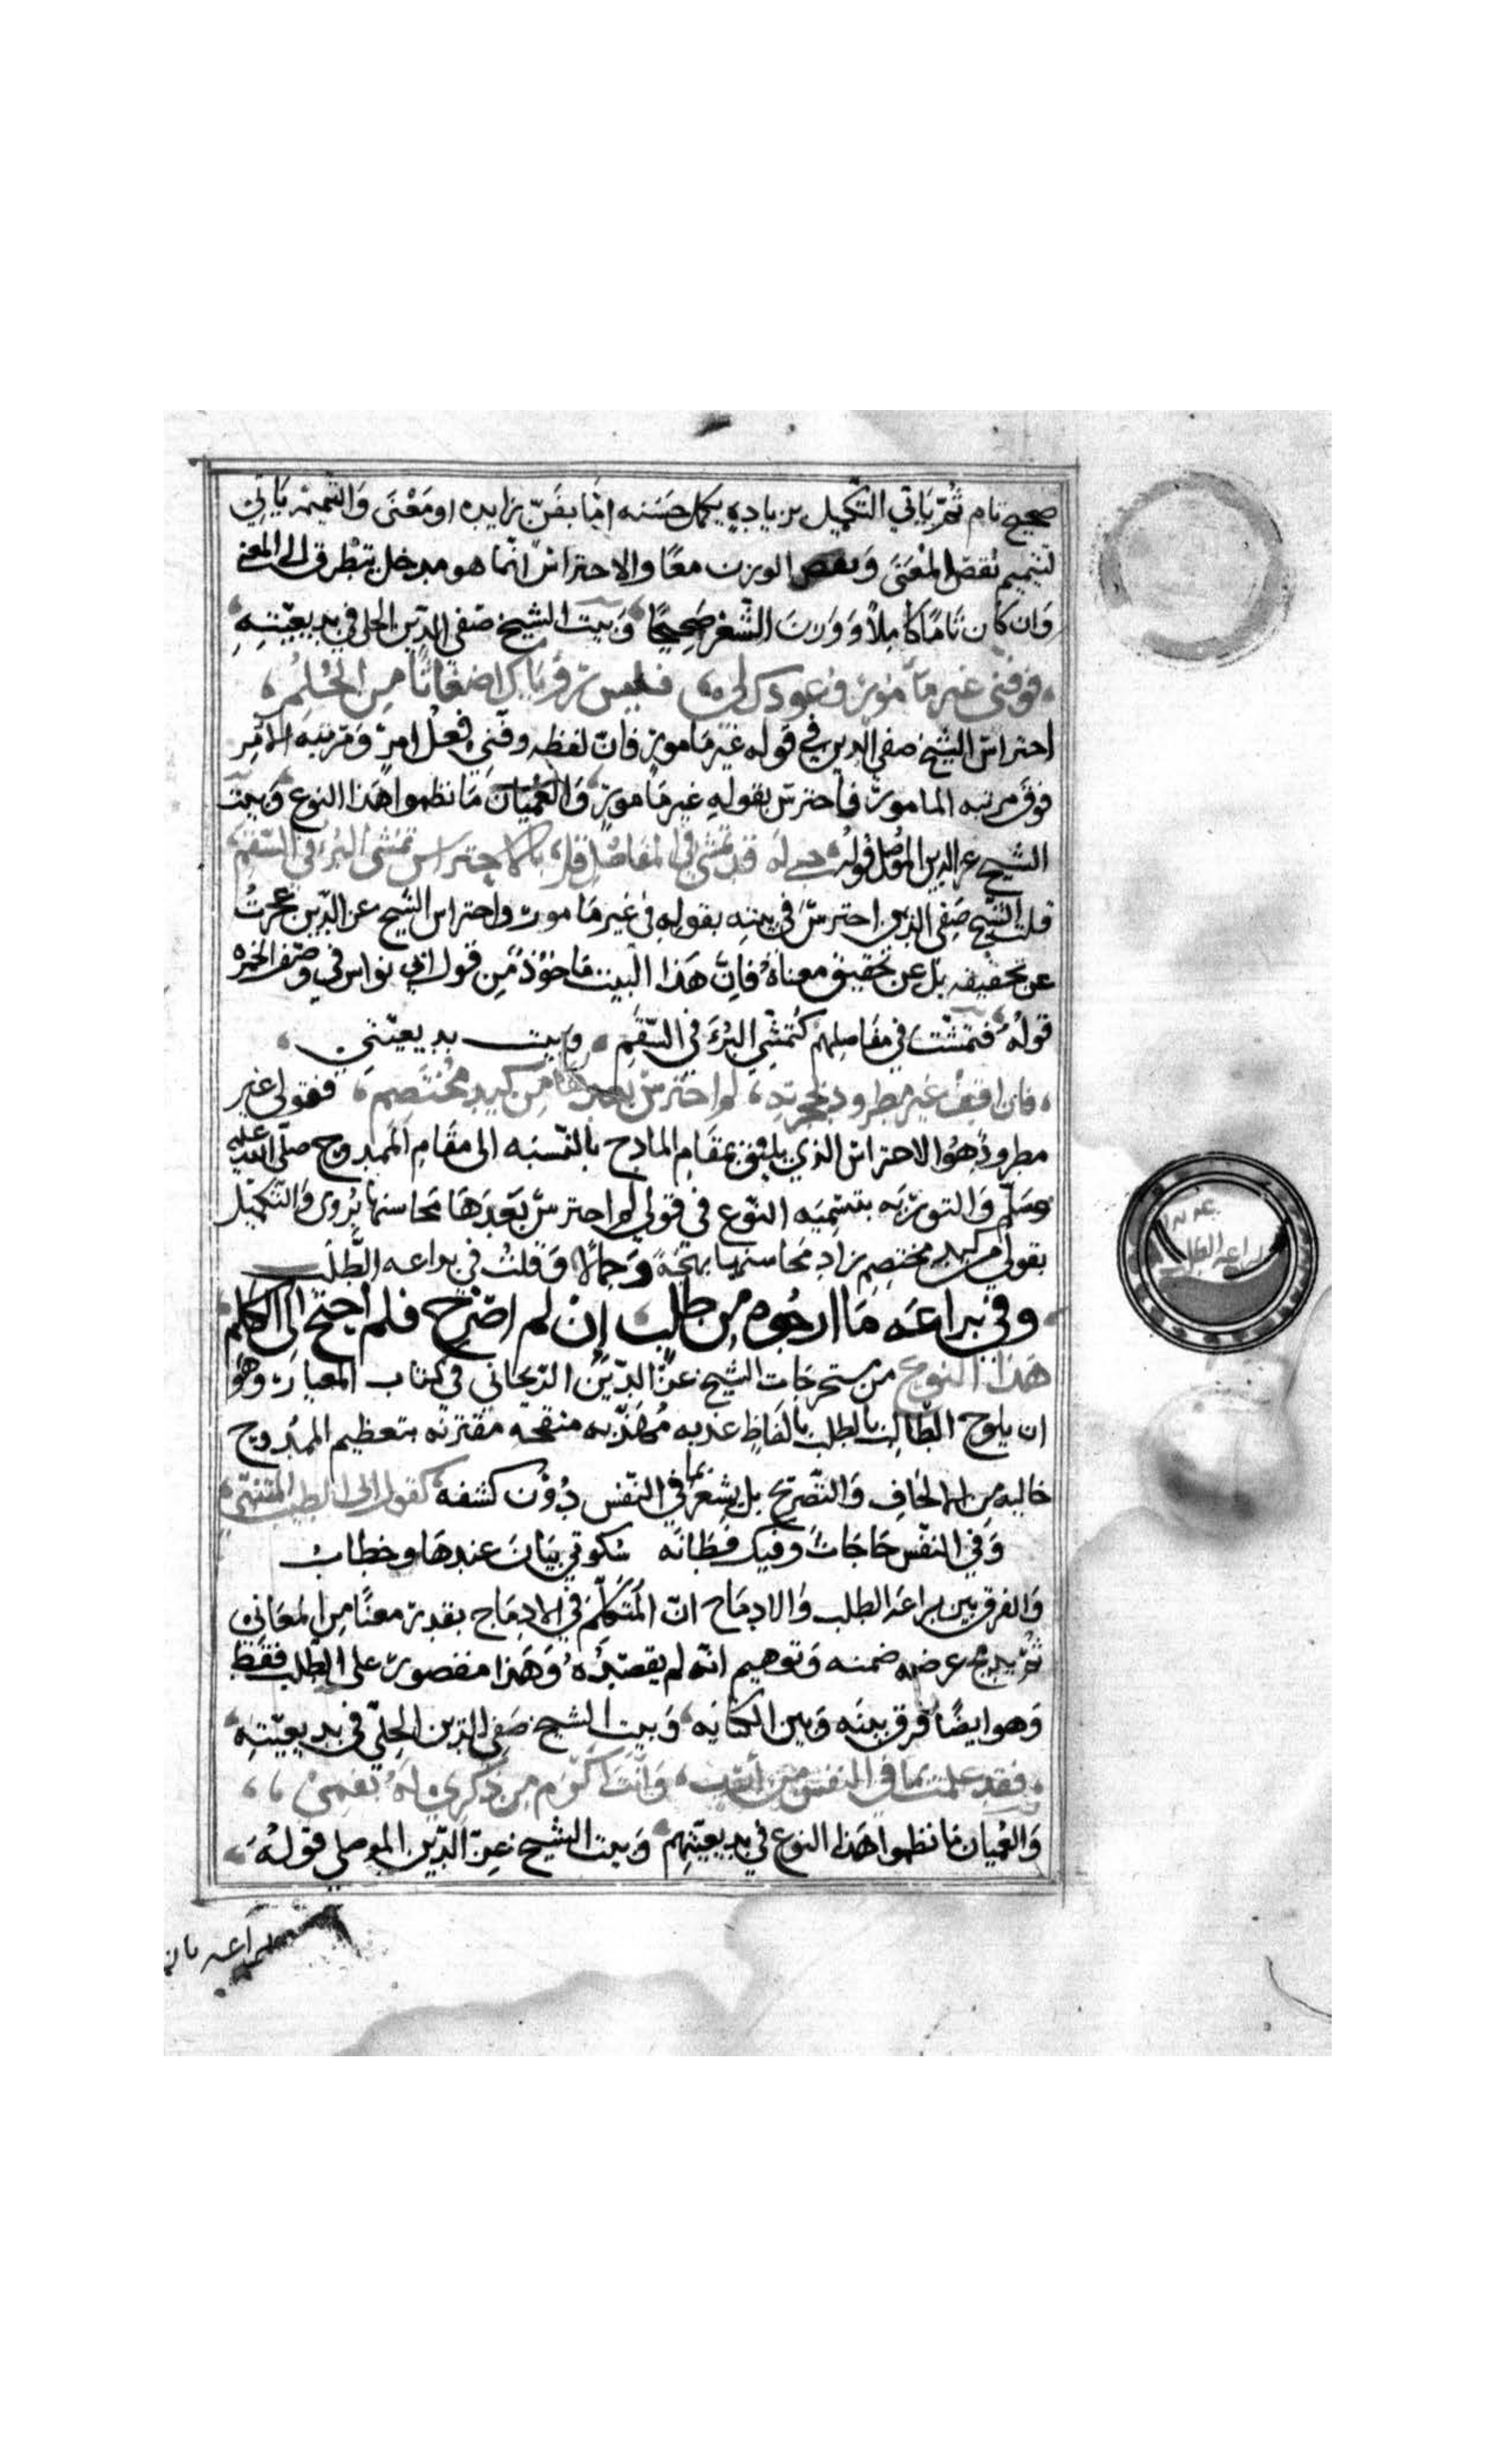 صحيح تام ثم ياتي التكميل بزيادة يكمل حسنه اما بفن زايد او معنى والتتميم ياتي
لتتميم نقص المعنى ونقص الوزن معا والاحتراس انما هو مدخل يتطرق الى المعنى
وان كان تاما كاملا ووزن الشعر صحيحا وبيت الشيخ صفي الدين الحلي في بديعيته
فوفني غير مأمور وعودك لي فليس رؤياك اضغاثا من الحلم
احتراس الشيخ صفي الدين في قوله غير مامور فان لفظه وفني فعل امر ومرتبه الامر
فوق مرتبه المامور فاحترس بقوله غير مامور والعميان ما نظموا هذا النوع وبيت
الشيخ عز الدين الموصلي قوله حبي له قد تمشى في المفاصل قل بالاحتراس تمشي البرء في السقم
قلت الشيخ صفي الدين احترس في بيته بقوله في غير مامور واحتراس الشيخ عز الدين عجزت
عن تحقيقه بل عن تحقيق معناه فان هذا البيت ماخوذ من قول ابي نواس في وصف الخمره
قوله فتمشت في مفاصلهم كتمشي البرء في السقم وبيت بديعيتي
فان اقف غير مطرود بحجرته لم احترس بعدها من كيد مختصم فقولي غير
مطرود هو الاحتراس الذي يليق بمقام المادح بالنسبه الى مقام الممدوح صلى الله عليه
وسلم والتوريه بتسميه النوع في قولي لم احترس بعدها محاسنها يروى والتكميل
بقولي من كيد مختصم زاد محاسنها بهجة وجمالا وقلت في براعه الطلب
وفي براعه ما ارجوه من طلب ان لم اصرح فلم احتج الى الكلم
هذا النوع من مستخرجات الشيخ عز الدين الزنجاني في كتاب المعيار وهو
ان يلوح الطالب بالطلب بالفاظ عذبه مهذبه منقحه مقترنه بتعظيم الممدوح
خاليه من الالحاف والتصريح بل يشعر بما في النفس دون كشفه كقول ابي الطيب المتنبي
وفي النفس حاجات وفيك فطانه سكوتي بيان عندها وخطاب
والفرق بين براعه الطلب والادماج ان المتكلم في الادماج يقدر معنا من المعاني
ثم يدمج غرضه ضمنه وتوهيم انه لم يقصده وهذا مقصور على الطلب فقط
وهو ايضا فرق بينه وبين الكنايه وبيت الشيخ صفي الدين الحلي في بديعيته
فقد علمت بما في النفس من أرب وانت اكرم من ذكري له بفمي
والعميان ما نظموا هذا النوع في بديعيتهم وبيت الشيخ عز الدين الموصلي قوله
براعه الطلب
براعه بان